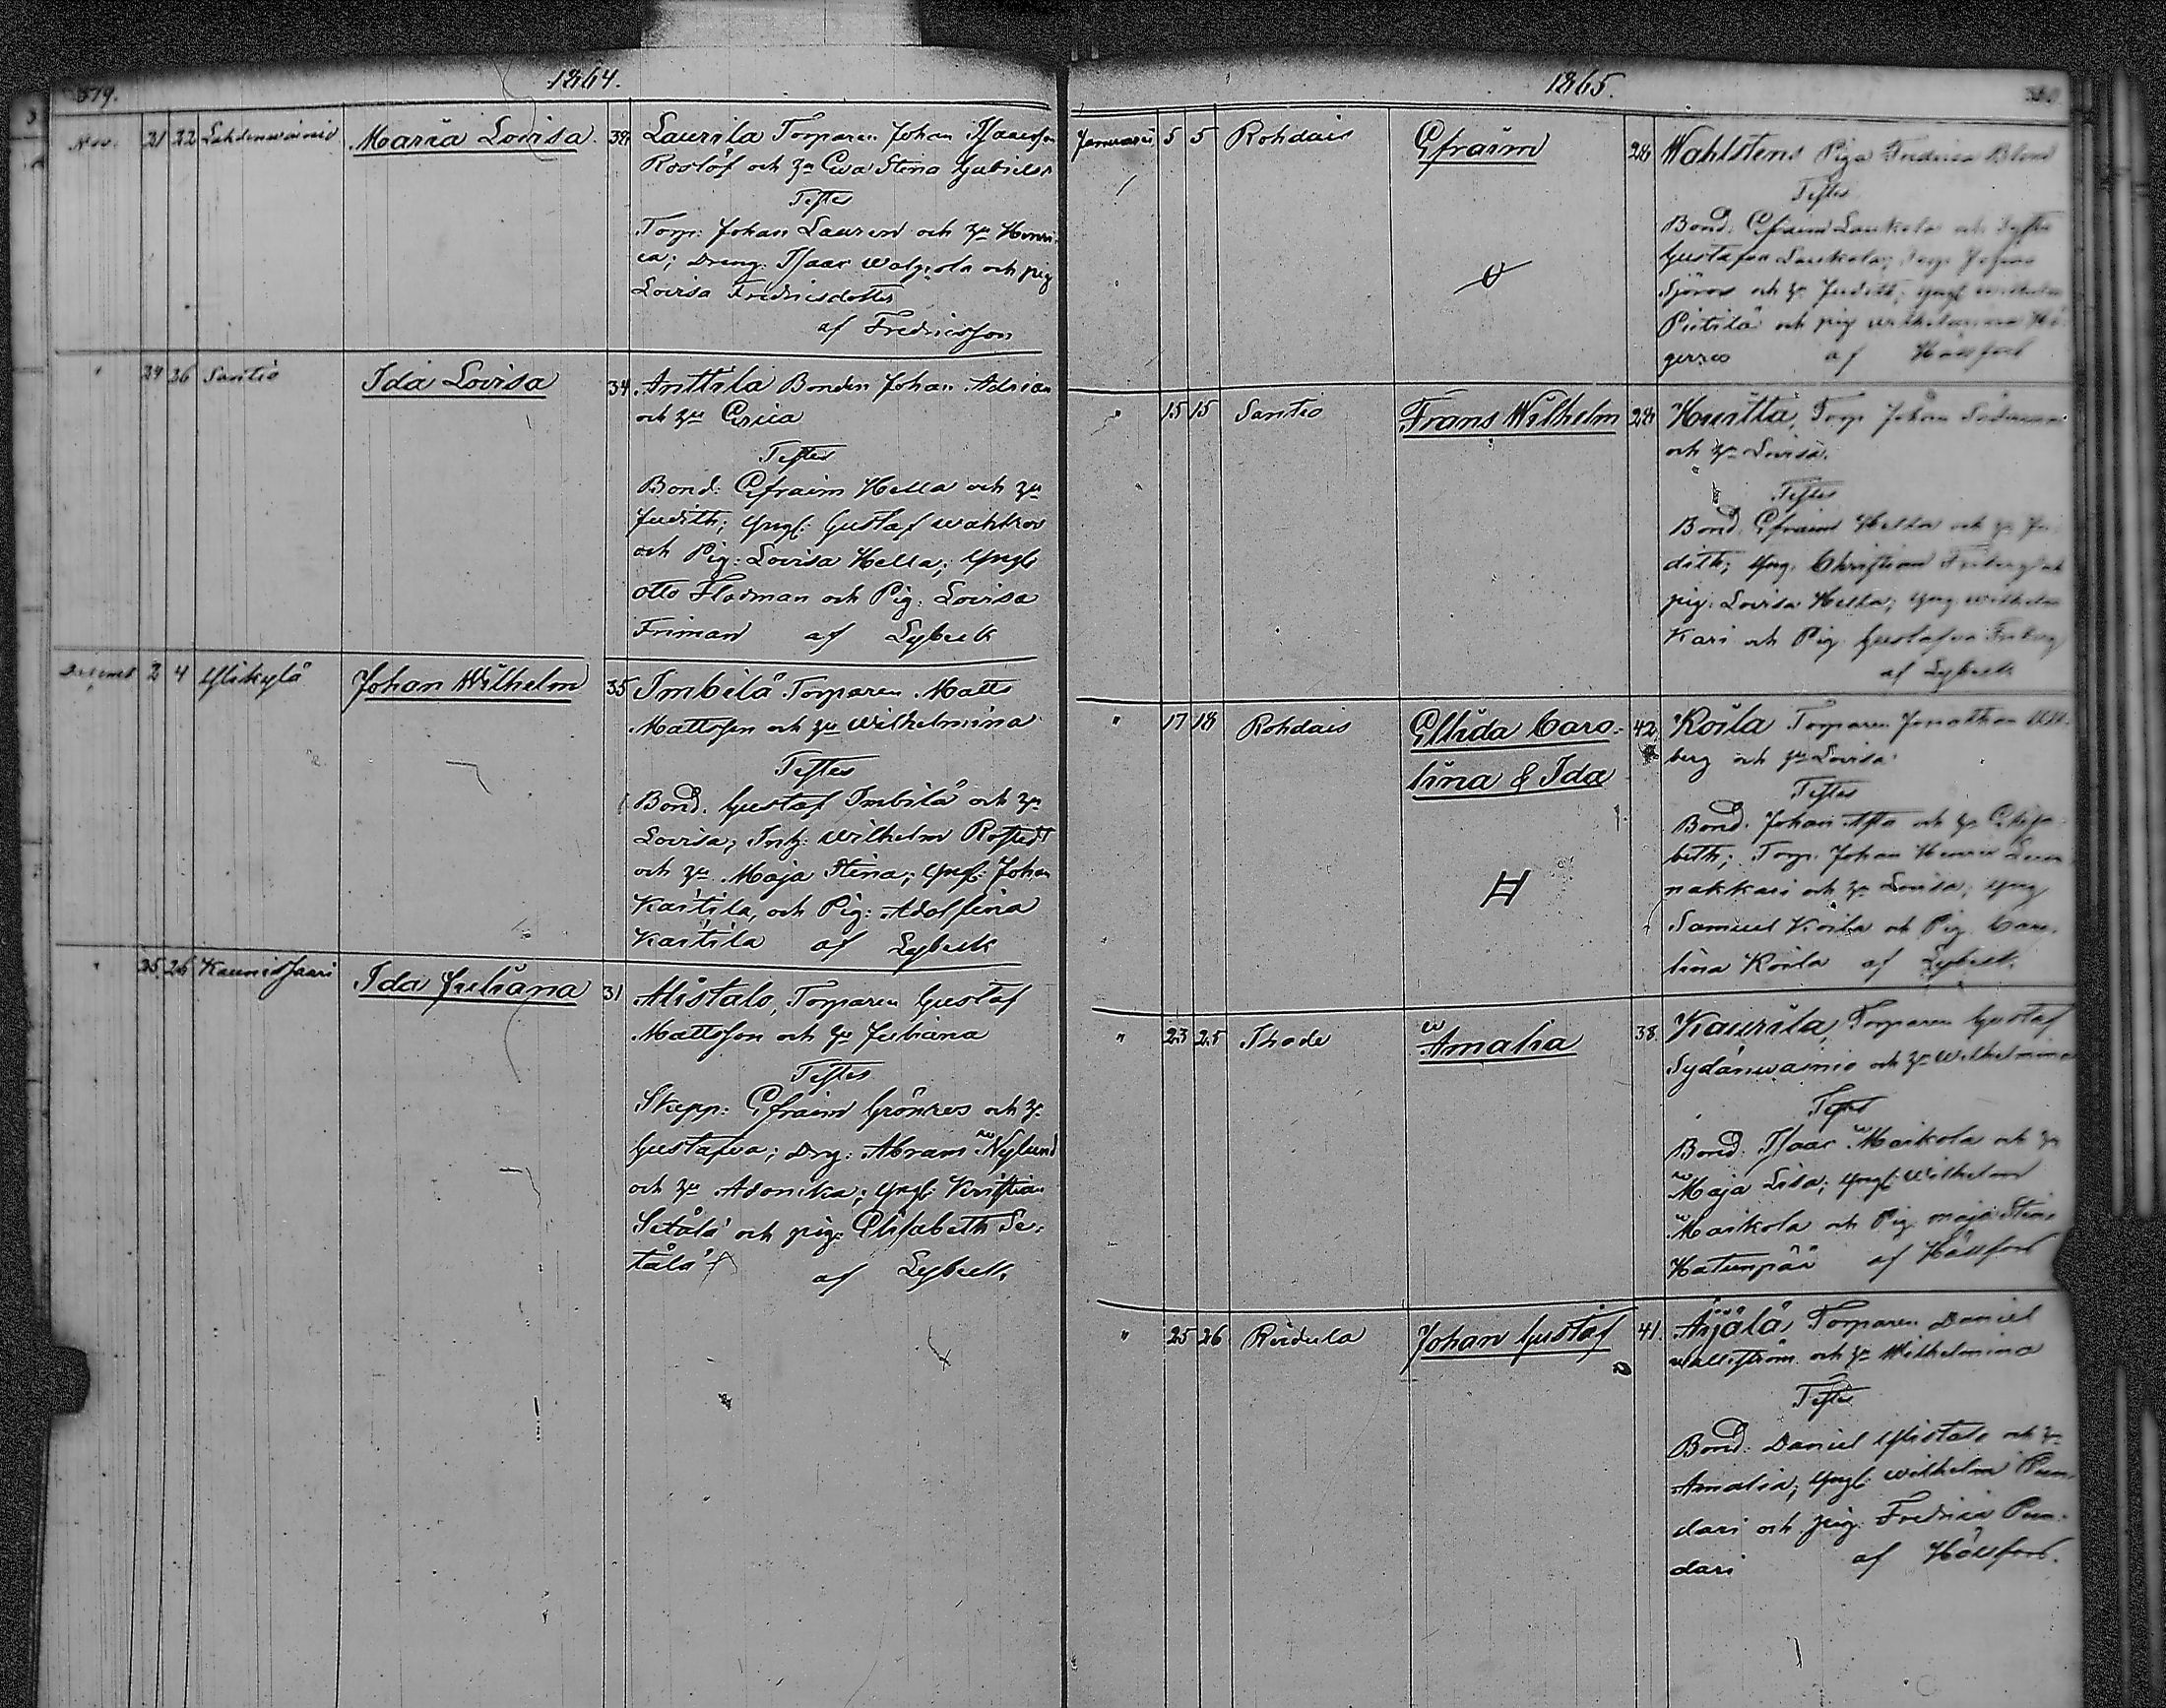 519.
1864.
Nov. 21 22 Lahdenwainio Maria Lovisa. 38 Laurila Torparen Johan Isaacsson
Roslöf och hu Eva Stina Gabrielsd
Testes
Torp: Johan Lauren och hu Henri-
ca; Dreng: Isaac Walpola och pig
Lovisa Fredricsdotter
af Fredricsson
" 24 26 Santio Ida Lovisa 34 Anttila Bonden Johan Adrian
och hu Erica
Testes
Bond: Efraim Hella och hu
Judith; Yngl: Gustaf Wahlros
och Pig: Lovisa Hella; Yngl:
Otto Flodman och Pig: Lovisa
Friman af Lybeck
Decemb 2 4 Ylikylä Johan Wilhelm 35 Imbilä Torparen Matts
Mattsson och hu Wilhelmina
Testes
Bond. Gustaf Imbilä och hu
Lovisa; Inh: Wilhelm Rostedt
och hu Maja Stina; Yngl: Johan
Kaitila, och Pig: Adolfina
Kaitila af Lybeck
" 25 26 Kaunissaari Ida Juliana 31 Alistalo, Torparen Gustaf
Mattsson och hu Juliana
Testes
Skepp: Efraim Grönroos och hu
Gustafva; Drg: Abram Nylund
och hu Adonika; Yngl: Kristian
Setälä och pig: Elisabeth Se-
tälä af Lybeck.
1865.
Januarii 5 5 Rohdais Efraim 28 Wahlstens Piga Fredrica Blom
Testes
Bond. Efraim Laukola och
Gustafva Laukola; Torp: Johan
Sjöroos och hu Judith; Yngl: Wilhelm
Pietilä och pig Wilhelmina Hä-
af Hällfors
" 15 15 Santio Frans Wilhelm 28 Kuitta, Torp Johan
och hu Lovisa.
Testes
Bond. Efraim Hella och hu Ju-
dith; Yng. Christian Friberg och
pig. Lovisa Hella; Yng. Wilhelm
Kari och Pig. Gustafva Friberg
af Lybeck
" 17 18 Rohdais Ellida Caro- 42. Koila Torparen Jonathan
lina & Ida berg och hu Lovisa.
Testes
Bond. Johan och hu Elisa-
beth; Torp. Johan Henric
nakkari och hu Lovisa; Yng
Samuel Koila och Pig. Caro-
lina Koila af Lybeck.
" 23 25 Thode Amalia 38. Kaurila, Torparen Gustaf
Sydänwainio och hu Wilhelmina
Testes
Bond. Isaac Maikola och hu
Maja Lisa; Yngl: Wilhelm
Maikola och Pig. Maja Stina
Hatunpää af Hällfors
" 25 26 Roidula Johan Gustaf 41. Äijälä Torparen Daniel
Wallström och hu Wilhelmina
Testes
Bond: Daniel Ylistalo och hu
Amalia; Yngl: Wilhelm Pun-
dari och pig. Fredrica Pun-
dari af Hällfors.